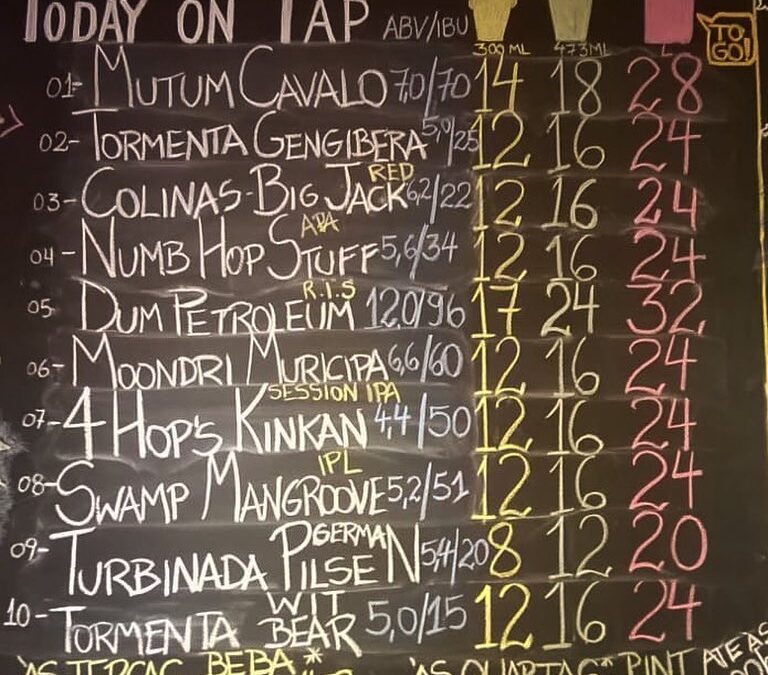 TODAY ON TAP ABV/IBU 300ML 473ML L TO GO!
01- MUTUM CAVALO 7,0/70 14 18 28
02- TORMENTA GENGIBERA 5,0/25 12 16 24
03- COLINAS-BIG JACK RED 6,2/22 12 16 24
04- NUMB HOP STUFF APA 5,6/34 12 16 24
05 DUM PETROLEUM R.I.S 12,0/96 17 24 32
06- MOONDRI MURICIPA 6,6/60 12 16 24
07- 4 HOP'S KINKAN SESSION IPA 4,4/50 12 16 24
08- SWAMP MANGROOVE IPL 5,2/51 12 16 24
09- TURBINADA GERMAN PILSEN 5,4/20 8 12 20
10- TORMENTA WIT BEAR 5,0/15 12 16 24
BEBA* PINT ATE AS